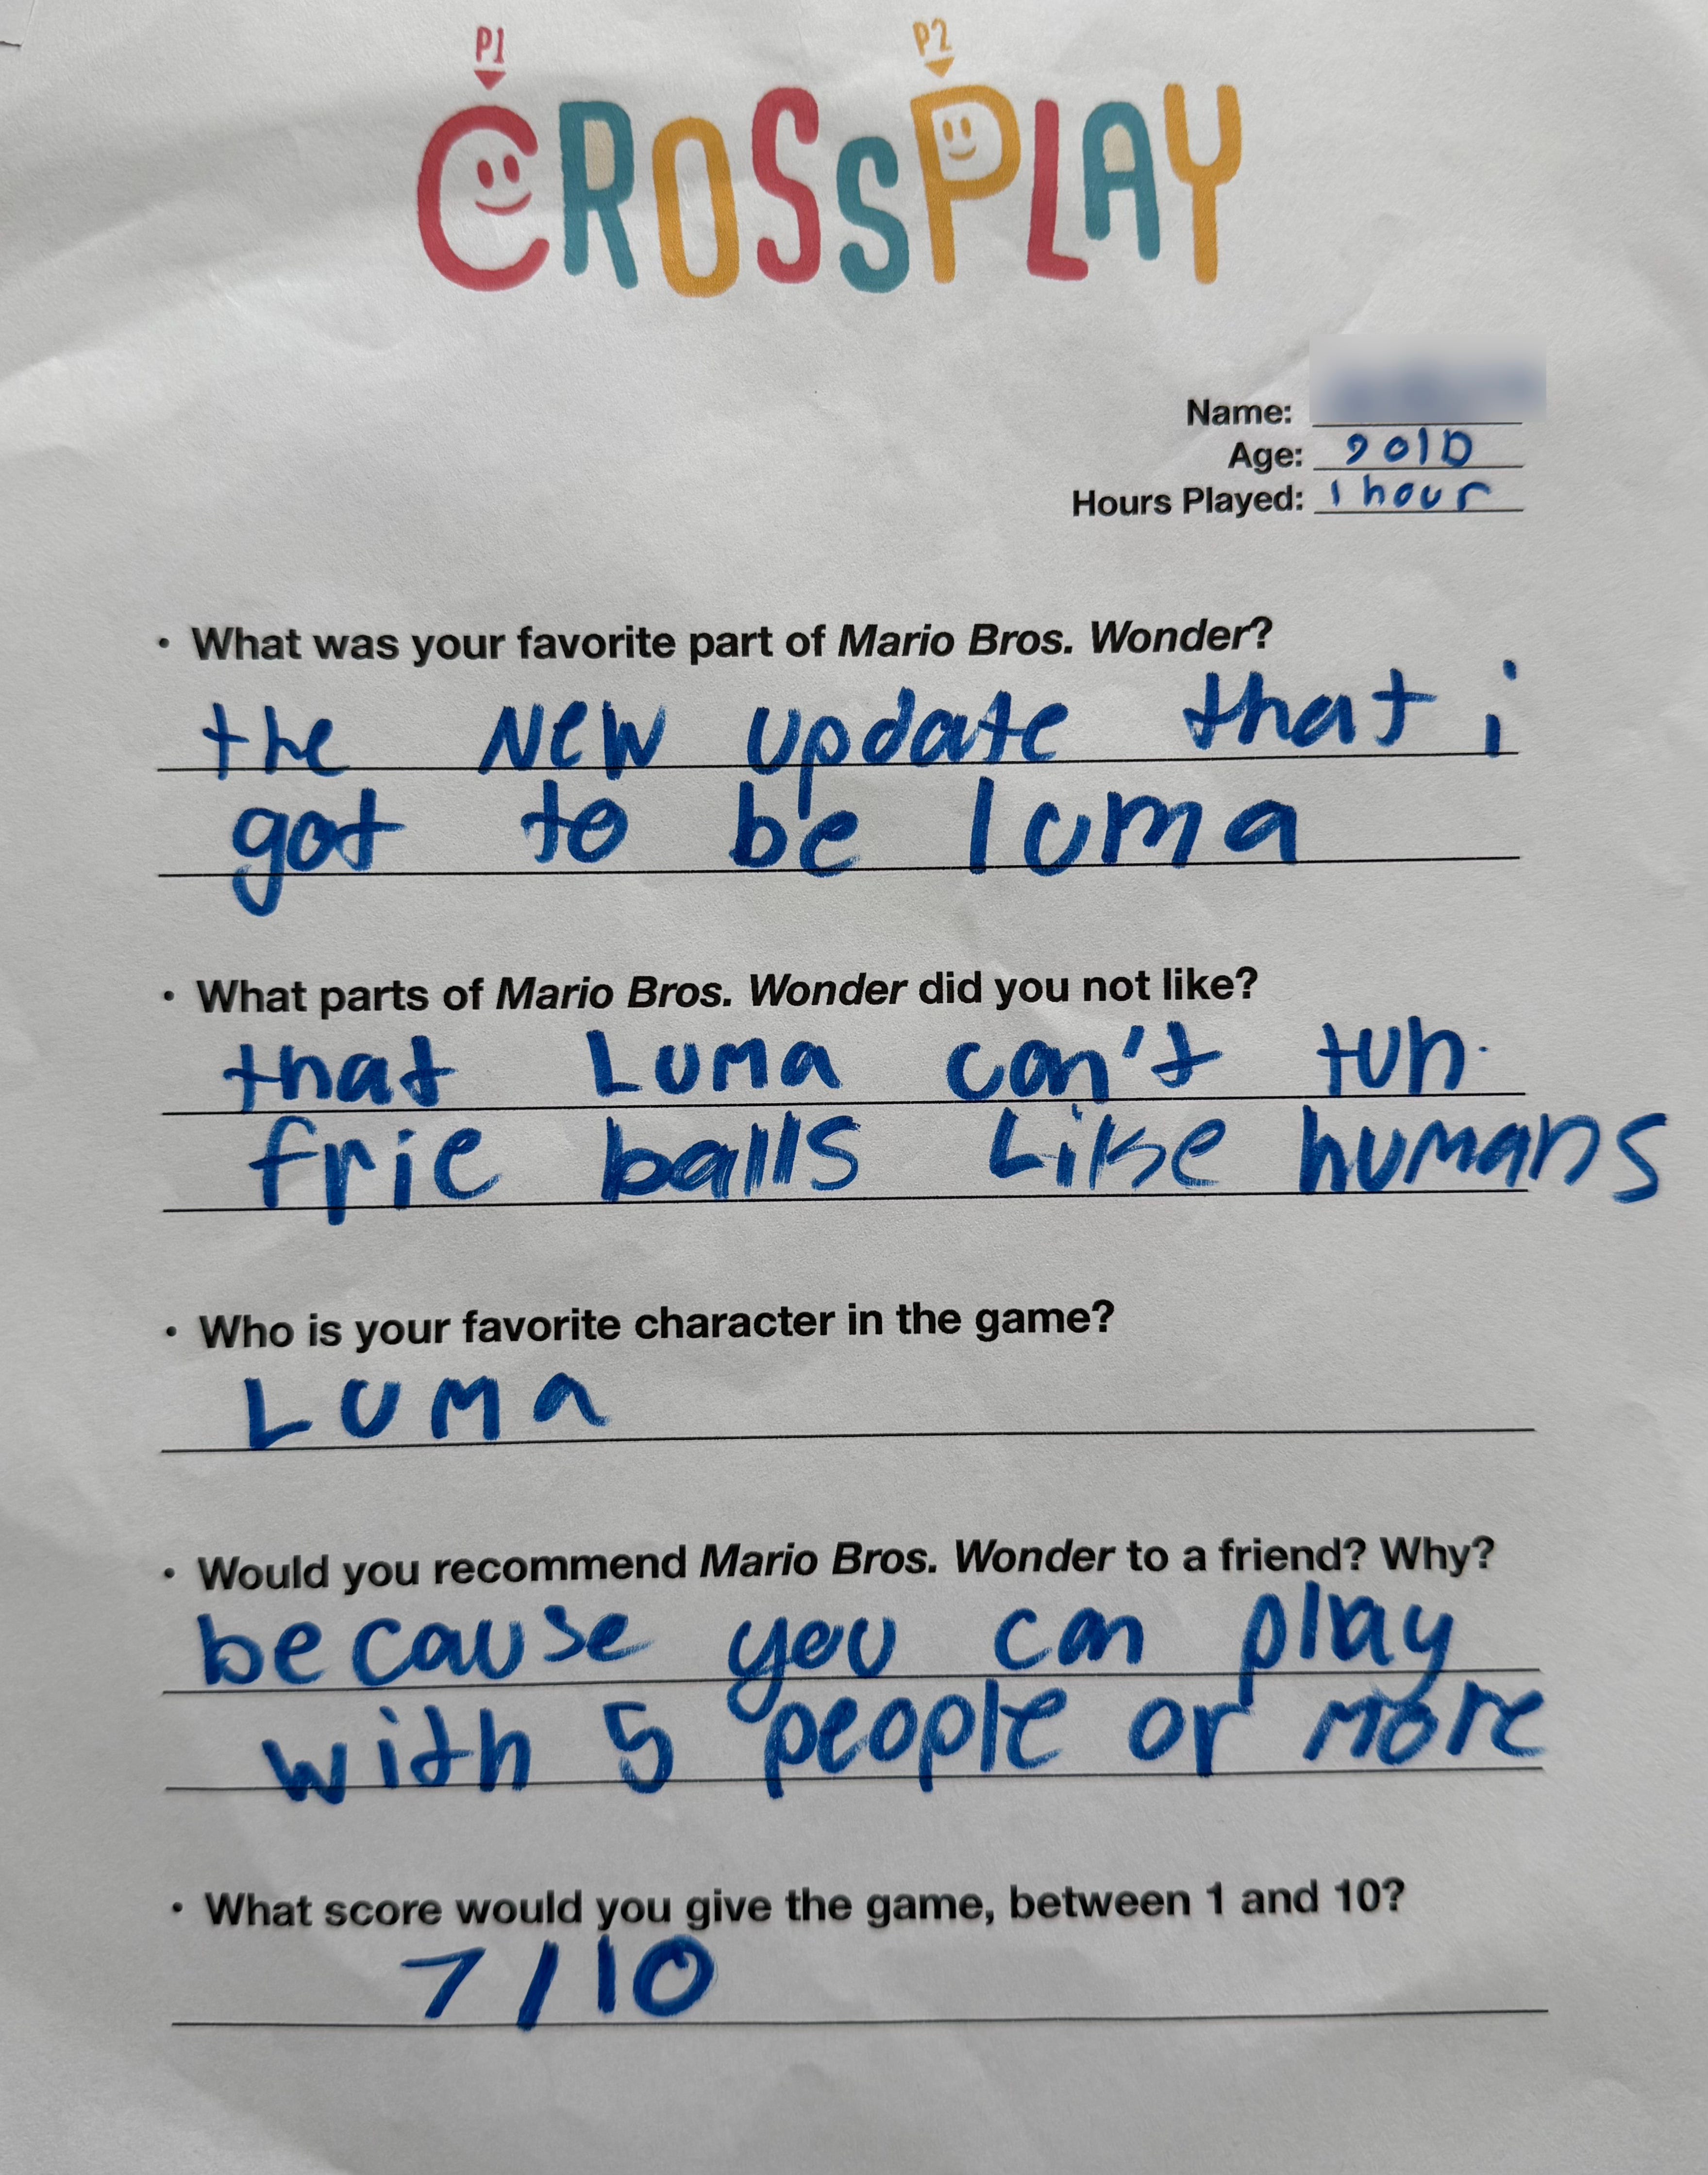 P1 P2
CROSSPLAY
Name:
Age: 9 old
Hours Played: 1 hour
• What was your favorite part of Mario Bros. Wonder?
the New update that i
got to be luma
• What parts of Mario Bros. Wonder did you not like?
that Luma can't
frie balls Like humans
• Who is your favorite character in the game?
LUMa
• Would you recommend Mario Bros. Wonder to a friend? Why?
because you can play
with 5 people or more
• What score would you give the game, between 1 and 10?
7/10